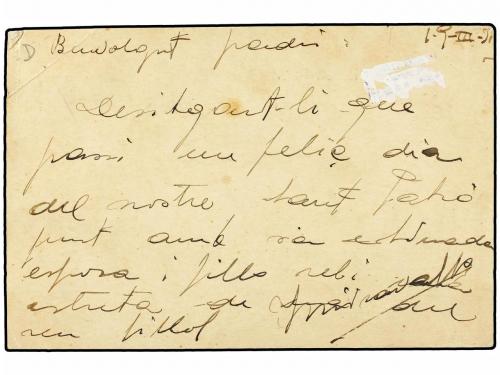 Benvolgut padrí:
Desitjant-li que
passi un feliç dia
del nostre Sant Patró
junt amb sa estimada
esposa i fills rebi
estreta de
seu fillol